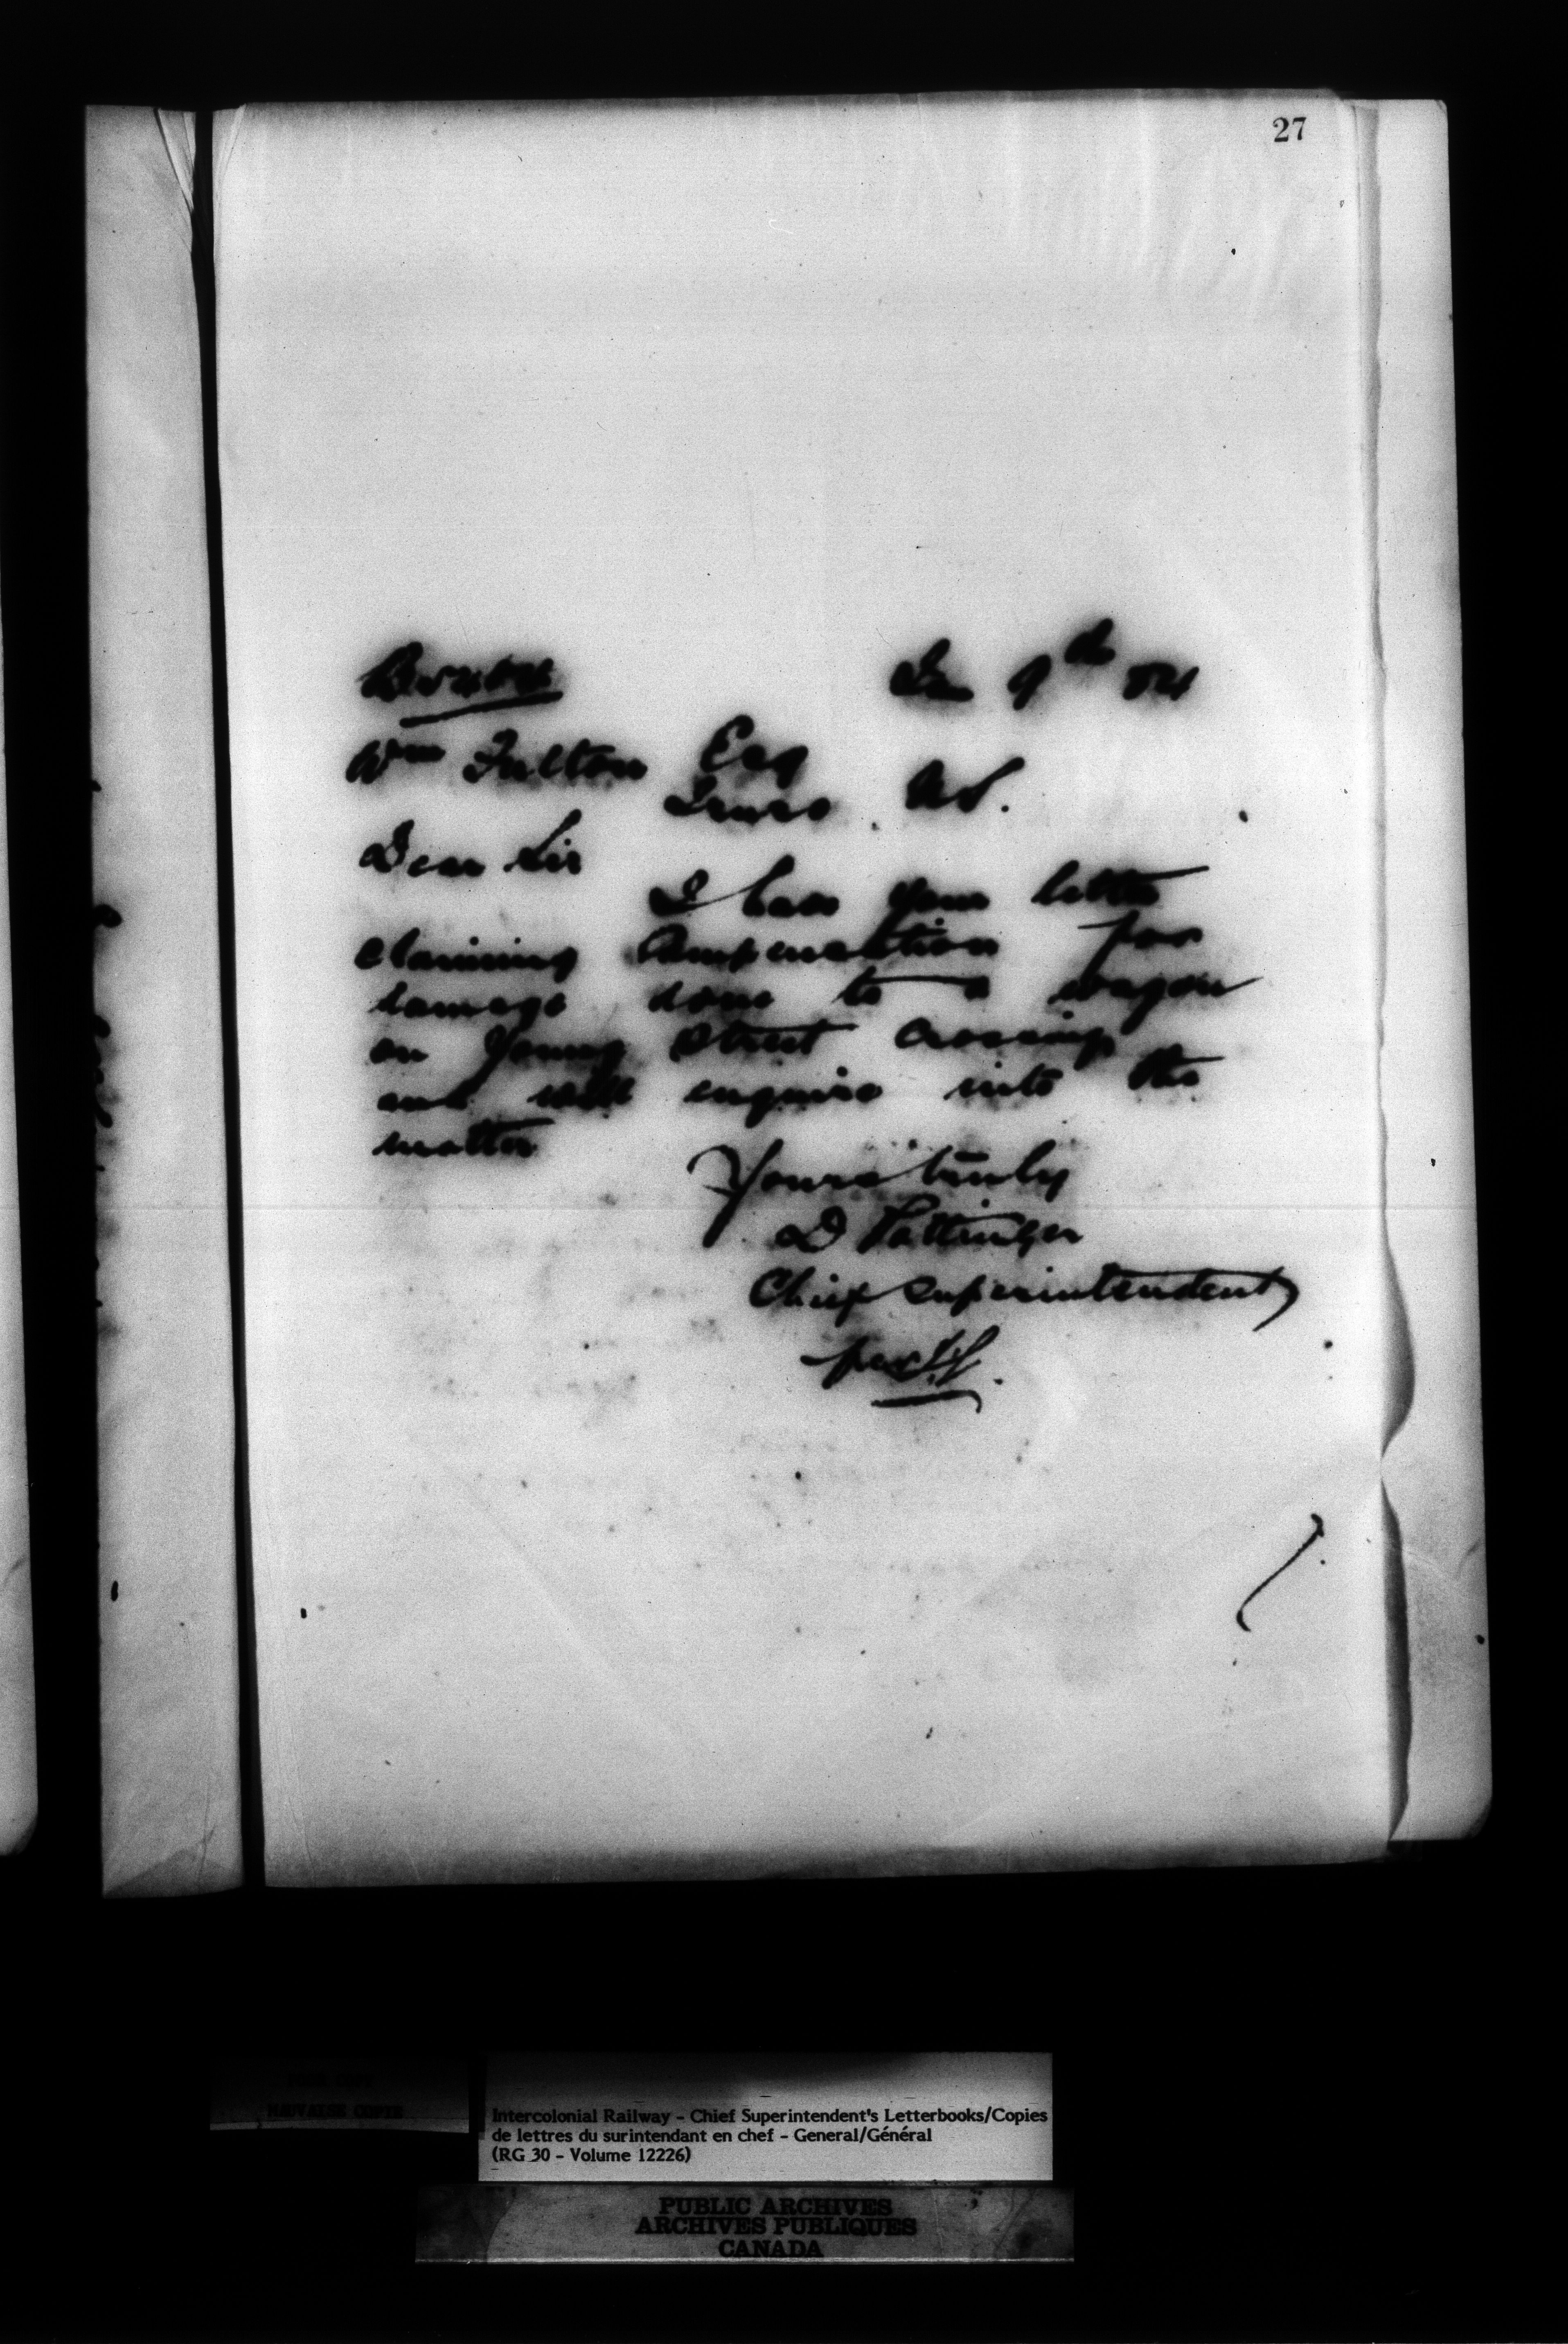 27
9th 84
Wm Fulton Esq
Truro. NS.
Dear Sir
I have your letter
claiming Compensation for
damage done to a wagon
on Young Street Crossing
and will enquire into the
matter
Yours truly
D Pottinger
Chief Superintendent
per
MAUVAISE COPIE
Intercolonial Railway - Chief Superintendent's Letterbooks/Copies
de lettres du surintendant en chef - General/Général
(RG 30 - Volume 12226)
PUBLIC ARCHIVES
ARCHIVES PUBLIQUES
CANADA